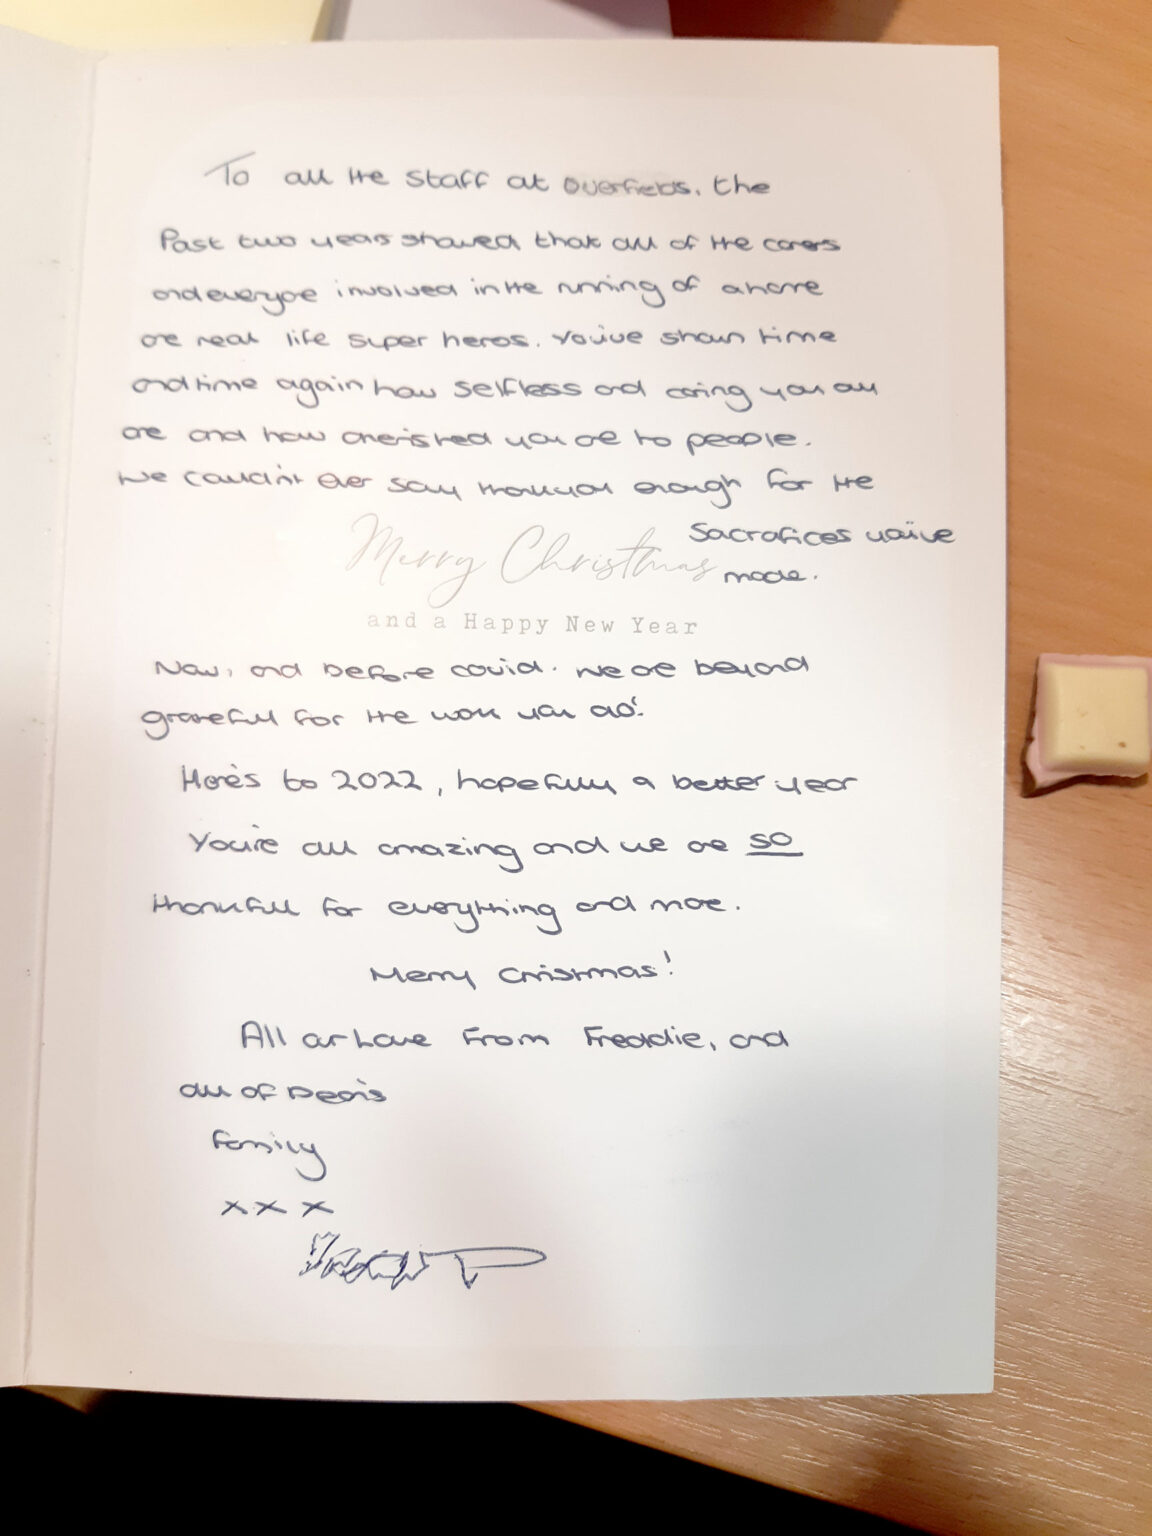 To all the staff at Overfields. the
Past two years showed that all of the carers
and everyone involved in the running of a home
are real life super heros. You've shown time
and time again how selfless and caring you all
are and how cherished you are to people.
We couldn't ever say thankyou enough for the
Sacrafices you've
made.
Merry Christmas
and a Happy New Year
Now, and before covid. we are beyond
grateful for the work you do!
Here's to 2022, hopefully a better year
You're all amazing and we are so
thankful for everything and more.
Merry Christmas!
All our Love From Freddie, and
all of
Family
xxx